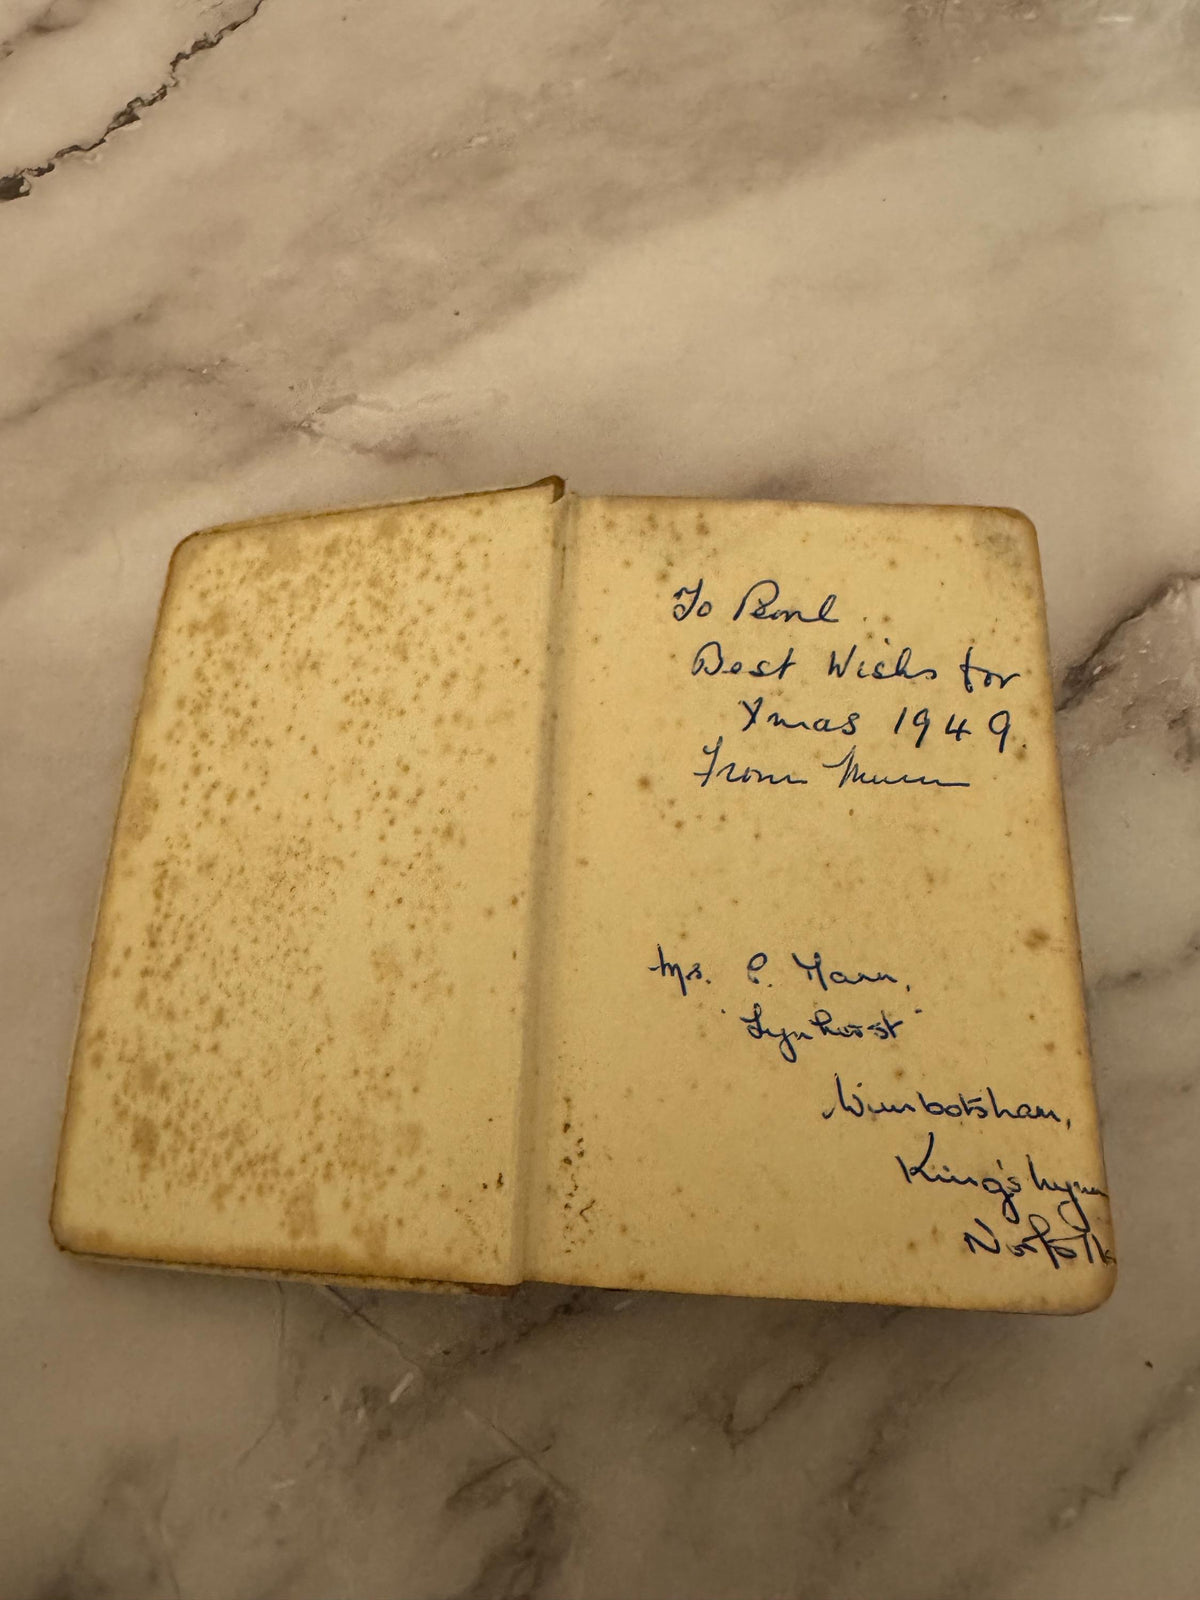 To
Best Wishes for
Xmas 1949.
From Mum
Mrs. C. Mann,
"Lynhurst"
Wimbotsham,
King's Lynn
Norfolk